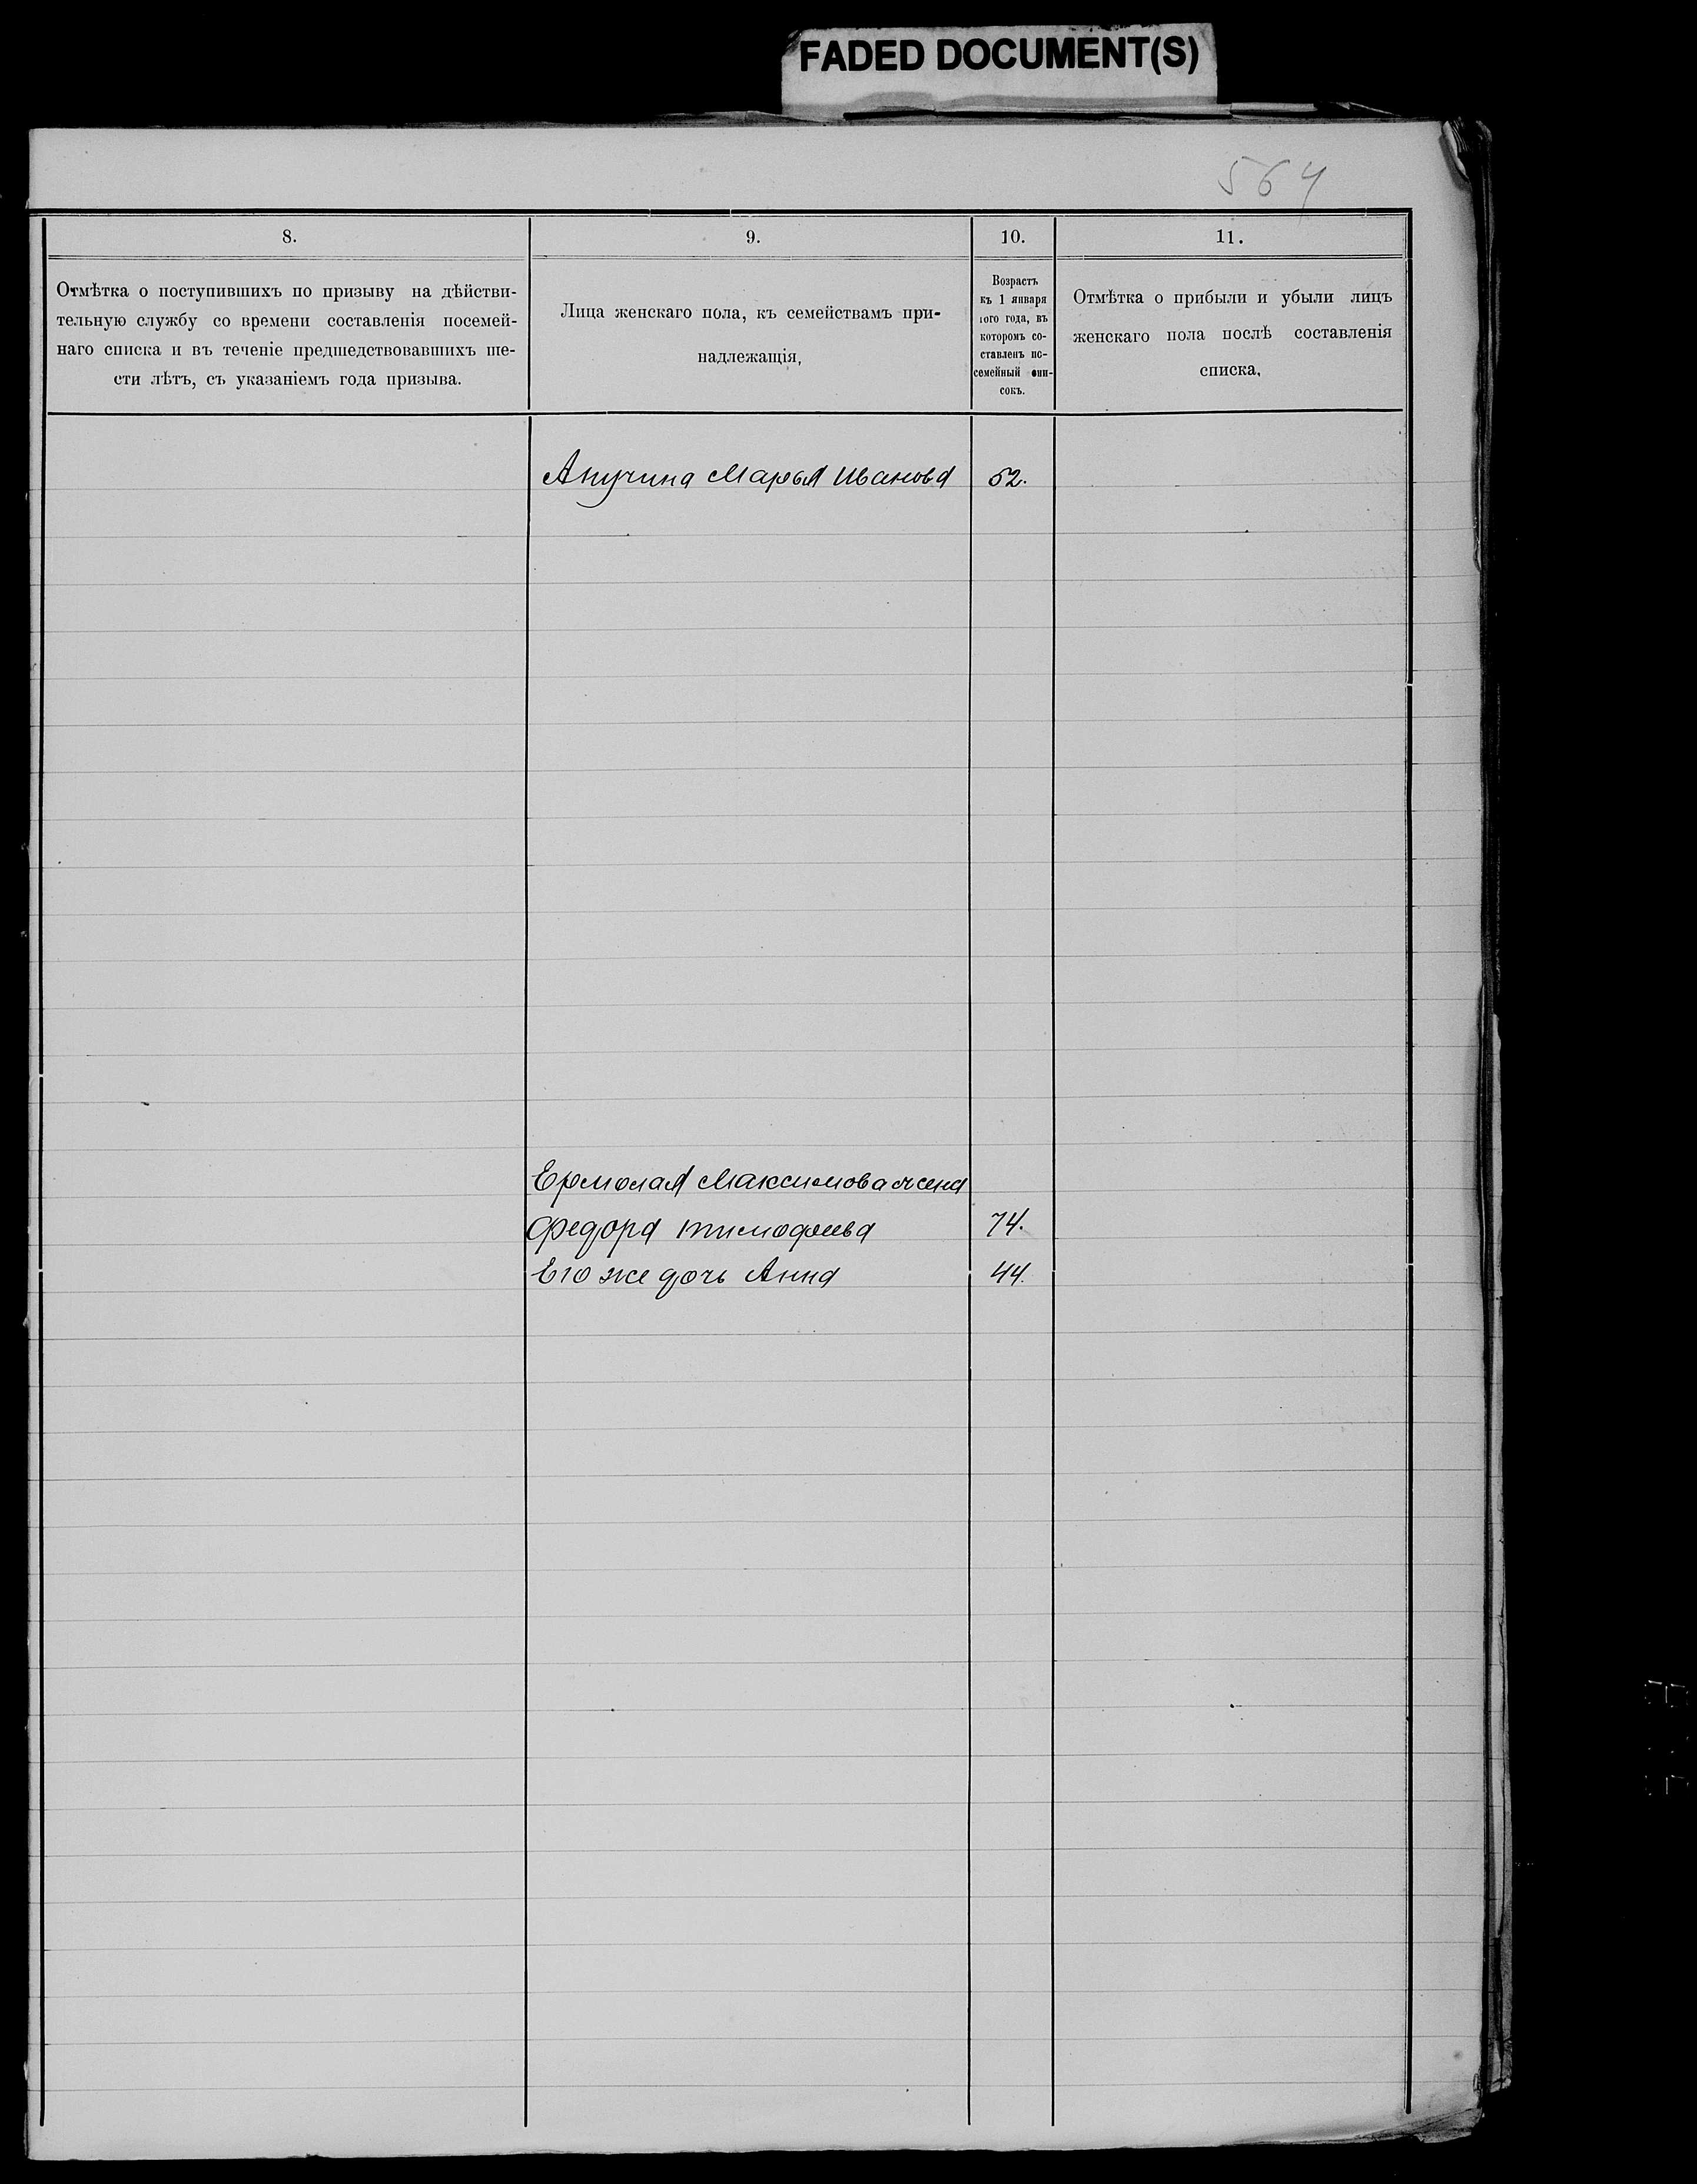 FADED DOCUMENT(S)
564
8.
9.
10.
11.
Отмѣтка о поступившихъ по призыву на дѣйстви-
тельную службу со времени составленія посемей-
наго списка и въ теченіе предшедствовавшихъ ше-
сти лѣтъ, съ указаніемъ года призыва.
Лица женскаго пола, къ семействамъ при-
надлежащія,
Возрастъ
къ 1 января
того года, въ
которомъ со-
ставленъ по-
семейный спи-
сокъ.
Отмѣтка о прибыли и убыли лицъ
женскаго пола послѣ составленія
списка,
Анучина Марья Иванова 52.
Ермолая Максимова жена
Федора Тимофеева 74.
Его же дочь Анна 44.